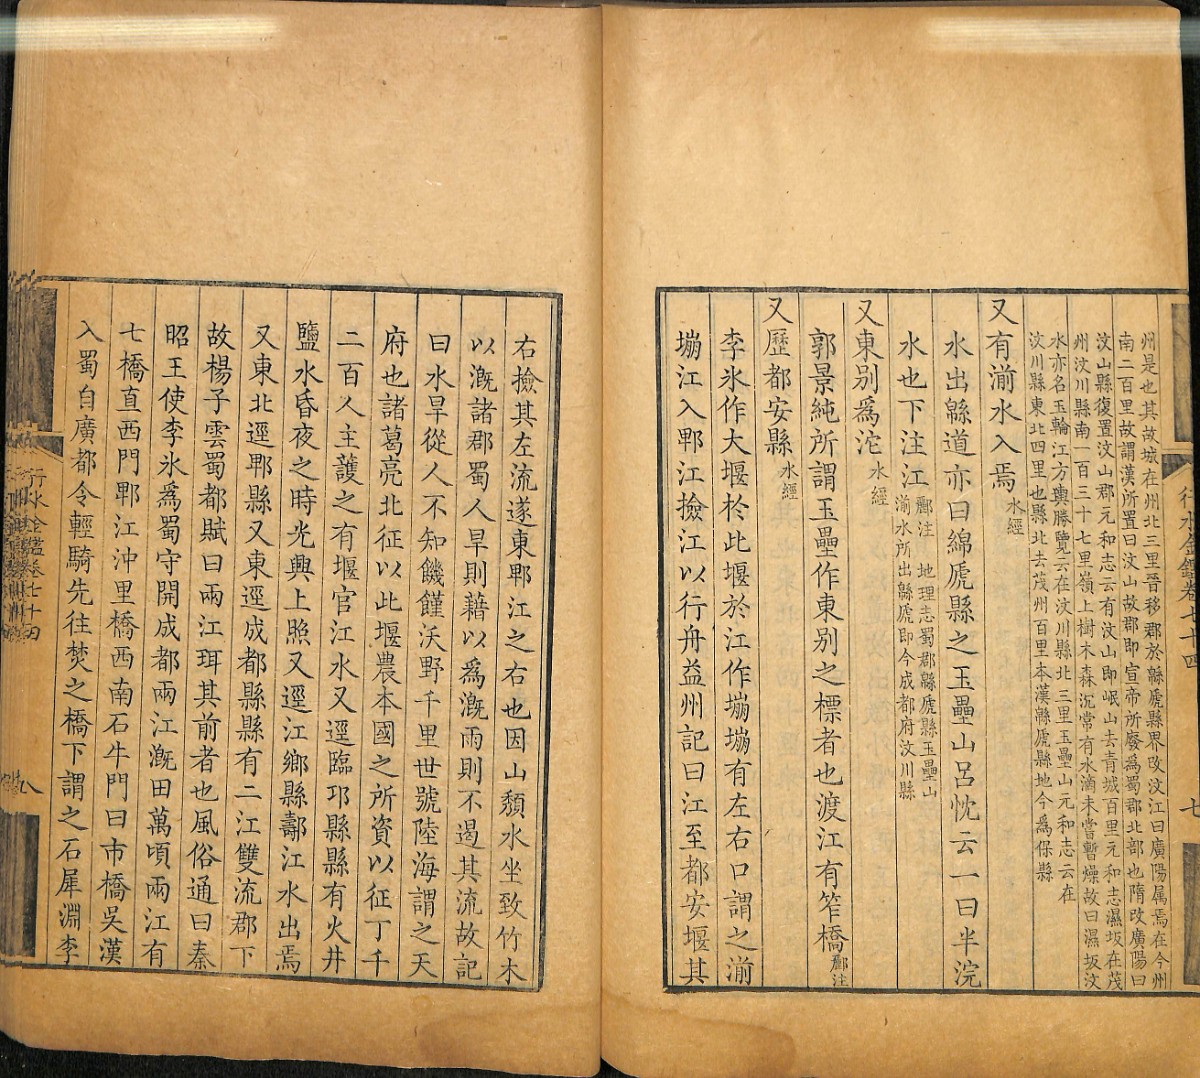 州是也其故城在州北三里晉移郡於緜虒縣界改汶江曰廣陽属焉在今州
南二百里故謂漢所置曰汶山故郡即宣帝所廢爲蜀郡北部也隋改廣陽曰
汶山縣復置汶山郡元和志云有汶山即岷山去青城百里元和志濕坂在茂
州汶川縣南一百三十七里嶺上樹木森沉常有水滴未嘗暫燥故曰濕坂汶
水亦名玉輪江方輿勝覽云在汶川縣北三里玉壘山元和志云在
汶川縣東北四里也縣北去茂州百里本漢緜虒縣地今爲保縣
又有湔水入焉水經
水出緜道亦曰綿虒縣之玉壘山呂忱云一曰半浣
水也下注江酈注 地理志蜀郡緜虒縣玉壘山
湔水所出縣虒即今成都府汶川縣
又東别爲沱水經
郭景純所謂玉壘作東别之標者也渡江有笮橋酈注
又歷都安縣水經
李氷作大堰於此堰於江作堋堋有左右口謂之湔
堋江入郫江撿江以行舟益州記曰江至都安堰其
行水金鑑卷七十四
七
右撿其左流遂東郫江之右也因山頽水坐致竹木
以溉諸郡蜀人旱則藉以爲溉雨則不遏其流故記
曰水旱從人不知饑饉沃野千里世號陸海謂之天
府也諸葛亮北征以此堰農本國之所資以征丁千
二百人主護之有堰官江水又逕臨邛縣縣有火井
鹽水昏夜之時光興上照又逕江鄉縣鄩江水出焉
又東北逕郫縣又東逕成都縣縣有二江雙流郡下
故楊子雲蜀都賦曰兩江珥其前者也風俗通曰秦
昭王使李氷爲蜀守開成都兩江溉田萬頃兩江有
七橋直西門郫江沖里橋西南石牛門曰市橋吳漢
入蜀自廣都令輕騎先往焚之橋下謂之石犀淵李
行水金鑑卷七十四
八